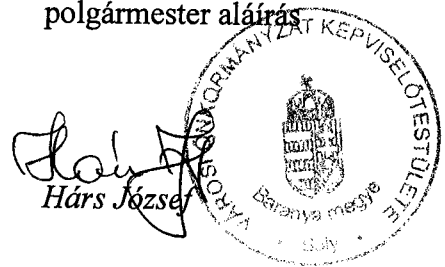 polgármester aláírás
Hárs József
VÁROSI ÖNKORMÁNYZAT KÉPVISELŐTESTÜLETE
Baranya megye